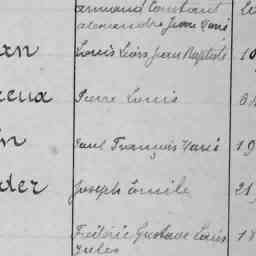 Armand Constant
Alexandre Jean Marie
an Louis Léon Jean Baptiste 19
Pierre Louis
Paul François Marie 19
der Joseph Emile 21
Frédéric Gustave Louis 18
Jules